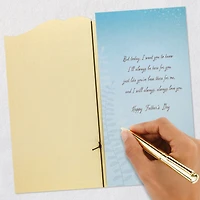 But today, I want you to know
I'll always be here for you
just like you've been there for me,
and I will always, always love you.
Happy Father's Day